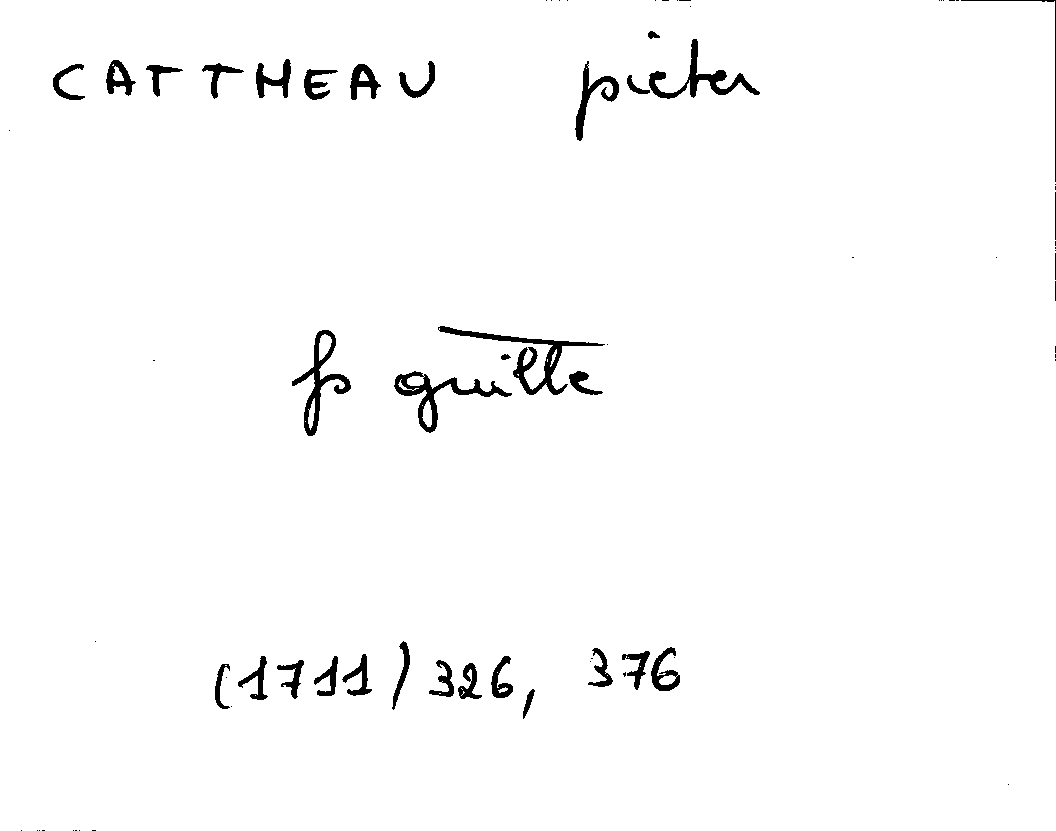 CATTHEAU pieter
fs guille
(1711) 326, 376